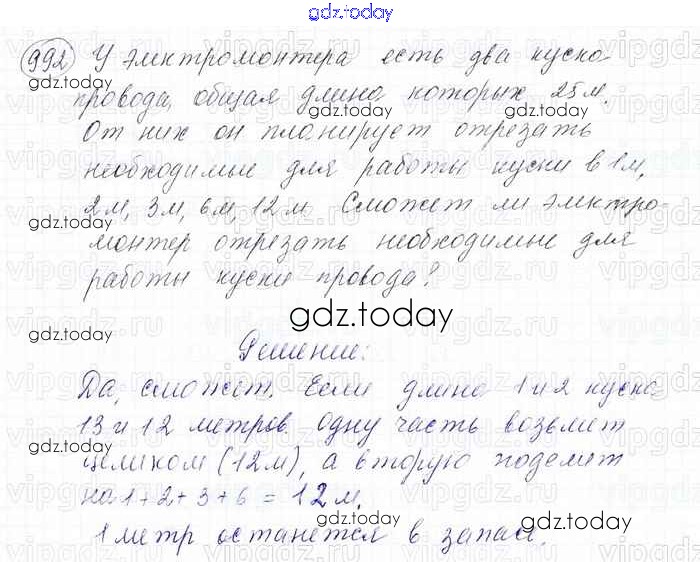 gdz.today
992 У электромонтера есть два куска
провода, общая длина которых 25 м.
От них он планирует отрезать
необходимые для работы куски в 1 м,
2 м, 3 м, 6 м, 12 м. Сможет ли электро-
монтер отрезать необходимые для
работы куски провода?
gdz.today
Решение:
Да, сможет. Если длина 1 и 2 куска
13 и 12 метров. Одну часть возьмет
целиком (12 м), а вторую поделит
на 1 + 2 + 3 + 6 = 12 м.
1 метр останется в запасе.